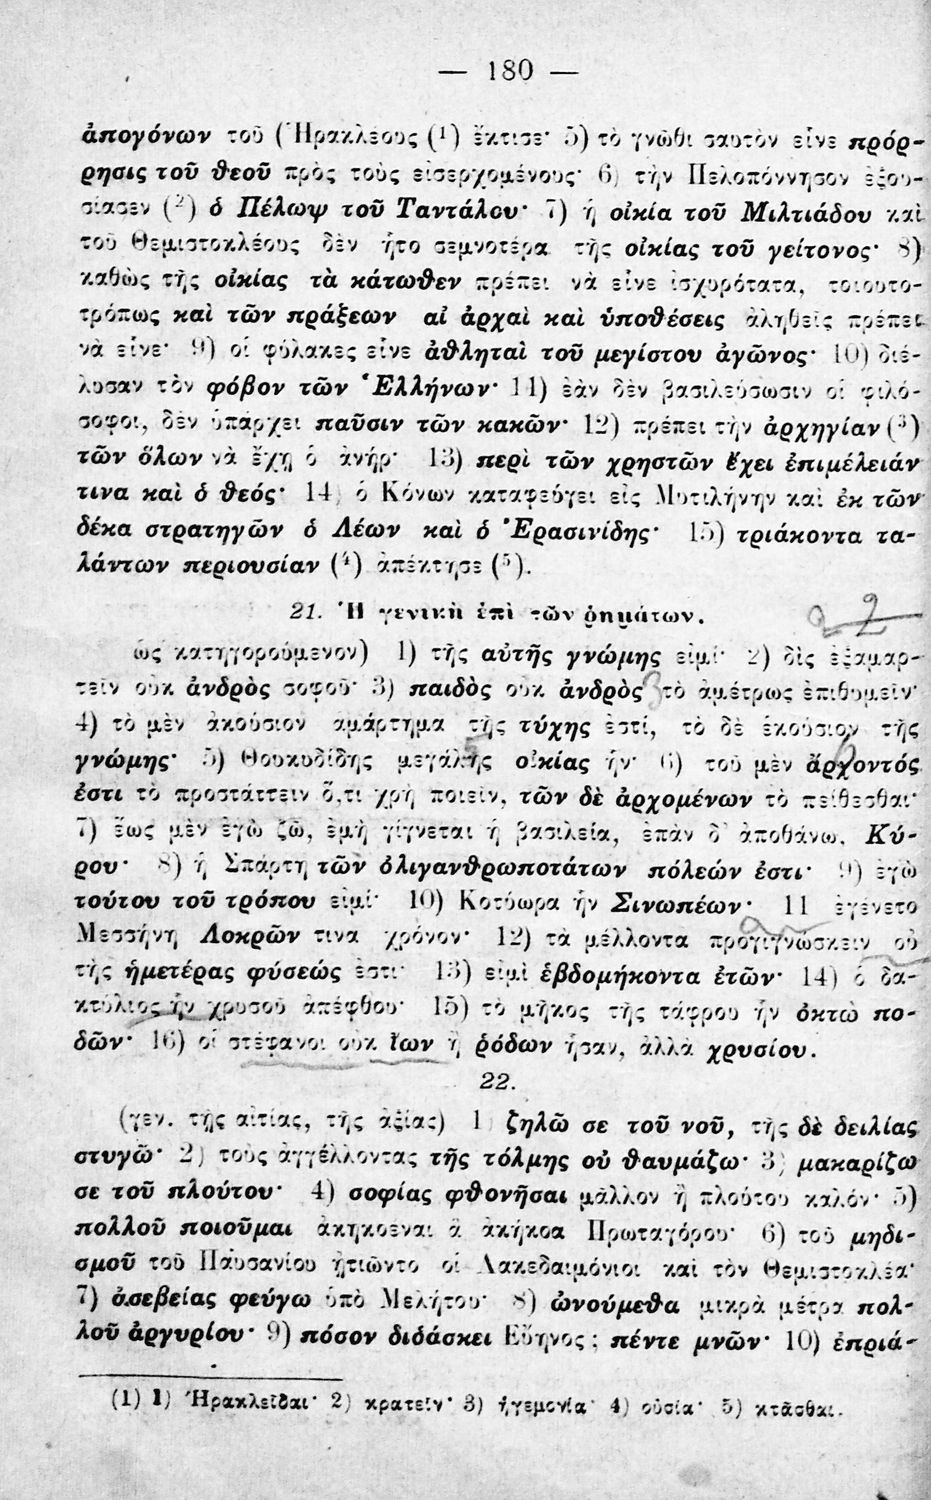 — 180 —
ἀπογόνων τοῦ (Ἡρακλέους (1) ἔκτισε· 5) τὸ γνῶθι σαυτὸν εἶνε πρόρ-
ρησις τοῦ θεοῦ πρὸς τοὺς εἰσερχομένους· 6) τὴν Πελοπόννησον ἐξου-
σίασεν (2) ὁ Πέλωψ τοῦ Ταντάλου· 7) ἡ οἰκία τοῦ Μιλτιάδου καὶ
τοῦ Θεμιστοκλέους δὲν ἦτο σεμνοτέρα τῆς οἰκίας τοῦ γείτονος· 8)
καθὼς τῆς οἰκίας τὰ κάτωθεν πρέπει νὰ εἶνε ἰσχυρότατα, τοιουτο-
τρόπως καὶ τῶν πράξεων αἱ ἀρχαὶ καὶ ὑποθέσεις ἀληθεῖς πρέπει
νὰ εἶνε· 9) οἱ φύλακες εἶνε ἀθληταὶ τοῦ μεγίστου ἀγῶνος· 10) διέ-
λυσαν τὸν φόβον τῶν Ἑλλήνων· 11) ἐὰν δὲν βασιλεύσωσιν οἱ φιλό-
σοφοι, δὲν ὑπάρχει παῦσιν τῶν κακῶν· 12) πρέπει τὴν ἀρχηγίαν (3)
τῶν ὅλων νὰ ἔχῃ ὁ ἀνήρ· 13) περὶ τῶν χρηστῶν ἔχει ἐπιμέλειάν
τινα καὶ ὁ θεός· 14) ὁ Κόνων καταφεύγει εἰς Μυτιλήνην καὶ ἐκ τῶν
δέκα στρατηγῶν ὁ Λέων καὶ ὁ Ἐρασινίδης· 15) τριάκοντα τα-
λάντων περιουσίαν (4) ἀπέκτησε (5).
21. Ἡ γενικὴ ἐπὶ τῶν ῥημάτων.
ὡς κατηγορούμενον) 1) τῆς αὐτῆς γνώμης εἰμί· 2) δὶς ἐξαμαρ-
τεῖν οὐκ ἀνδρὸς σοφοῦ· 3) παιδὸς οὐκ ἀνδρὸς τὸ ἀμέτρως ἐπιθυμεῖν·
4) τὸ μὲν ἀκούσιον ἁμάρτημα τῆς τύχης ἐστί, τὸ δὲ ἑκούσιον τῆς
γνώμης· 5) Θουκυδίδης μεγάλης οἰκίας ἦν· 6) τοῦ μὲν ἄρχοντός
ἐστι τὸ προστάττειν ὅ,τι χρὴ ποιεῖν, τῶν δὲ ἀρχομένων τὸ πείθεσθαι·
7) ἕως μὲν ἐγὼ ζῶ, ἐμὴ γίγνεται ἡ βασιλεία, ἐπὰν δ' ἀποθάνω, Κύ-
ρου· 8) ἡ Σπάρτη τῶν ὀλιγανθρωποτάτων πόλεών ἐστι· 9) ἐγὼ
τούτου τοῦ τρόπου εἰμί· 10) Κοτύωρα ἦν Σινωπέων· 11 ἐγένετο
Μεσσήνη Λοκρῶν τινα χρόνον· 12) τὰ μέλλοντα προγιγνώσκειν οὐ
τῆς ἡμετέρας φύσεώς ἐστι· 13) εἰμὶ ἑβδομήκοντα ἐτῶν· 14) ὁ δα-
κτύλιος ἦν χρυσοῦ ἀπέφθου· 15) τὸ μῆκος τῆς τάφρου ἦν ὀκτὼ πο-
δῶν· 16) οἱ στέφανοι οὐκ ἴων ἢ ῥόδων ἦσαν, ἀλλὰ χρυσίου.
22.
(γεν. τῆς αἰτίας, τῆς ἀξίας) 1) ζηλῶ σε τοῦ νοῦ, τῆς δὲ δειλίας
στυγῶ· 2) τοὺς ἀγγέλλοντας τῆς τόλμης οὐ θαυμάζω· 3) μακαρίζω
σε τοῦ πλούτου· 4) σοφίας φθονῆσαι μᾶλλον ἢ πλούτου καλόν· 5)
πολλοῦ ποιοῦμαι ἀκηκοέναι ἃ ἀκήκοα Πρωταγόρου· 6) τοῦ μηδι-
σμοῦ τοῦ Παυσανίου ᾐτιῶντο οἱ Λακεδαιμόνιοι καὶ τὸν Θεμιστοκλέα·
7) ἀσεβείας φεύγω ὑπὸ Μελήτου· 8) ὠνούμεθα μικρὰ μέτρα πολ-
λοῦ ἀργυρίου· 9) πόσον διδάσκει Εὔηνος; πέντε μνῶν· 10) ἐπριά-
(1) 1) Ἡρακλεῖδαι· 2) κρατεῖν· 3) ἡγεμονία· 4) οὐσία· 5) κτᾶσθαι.